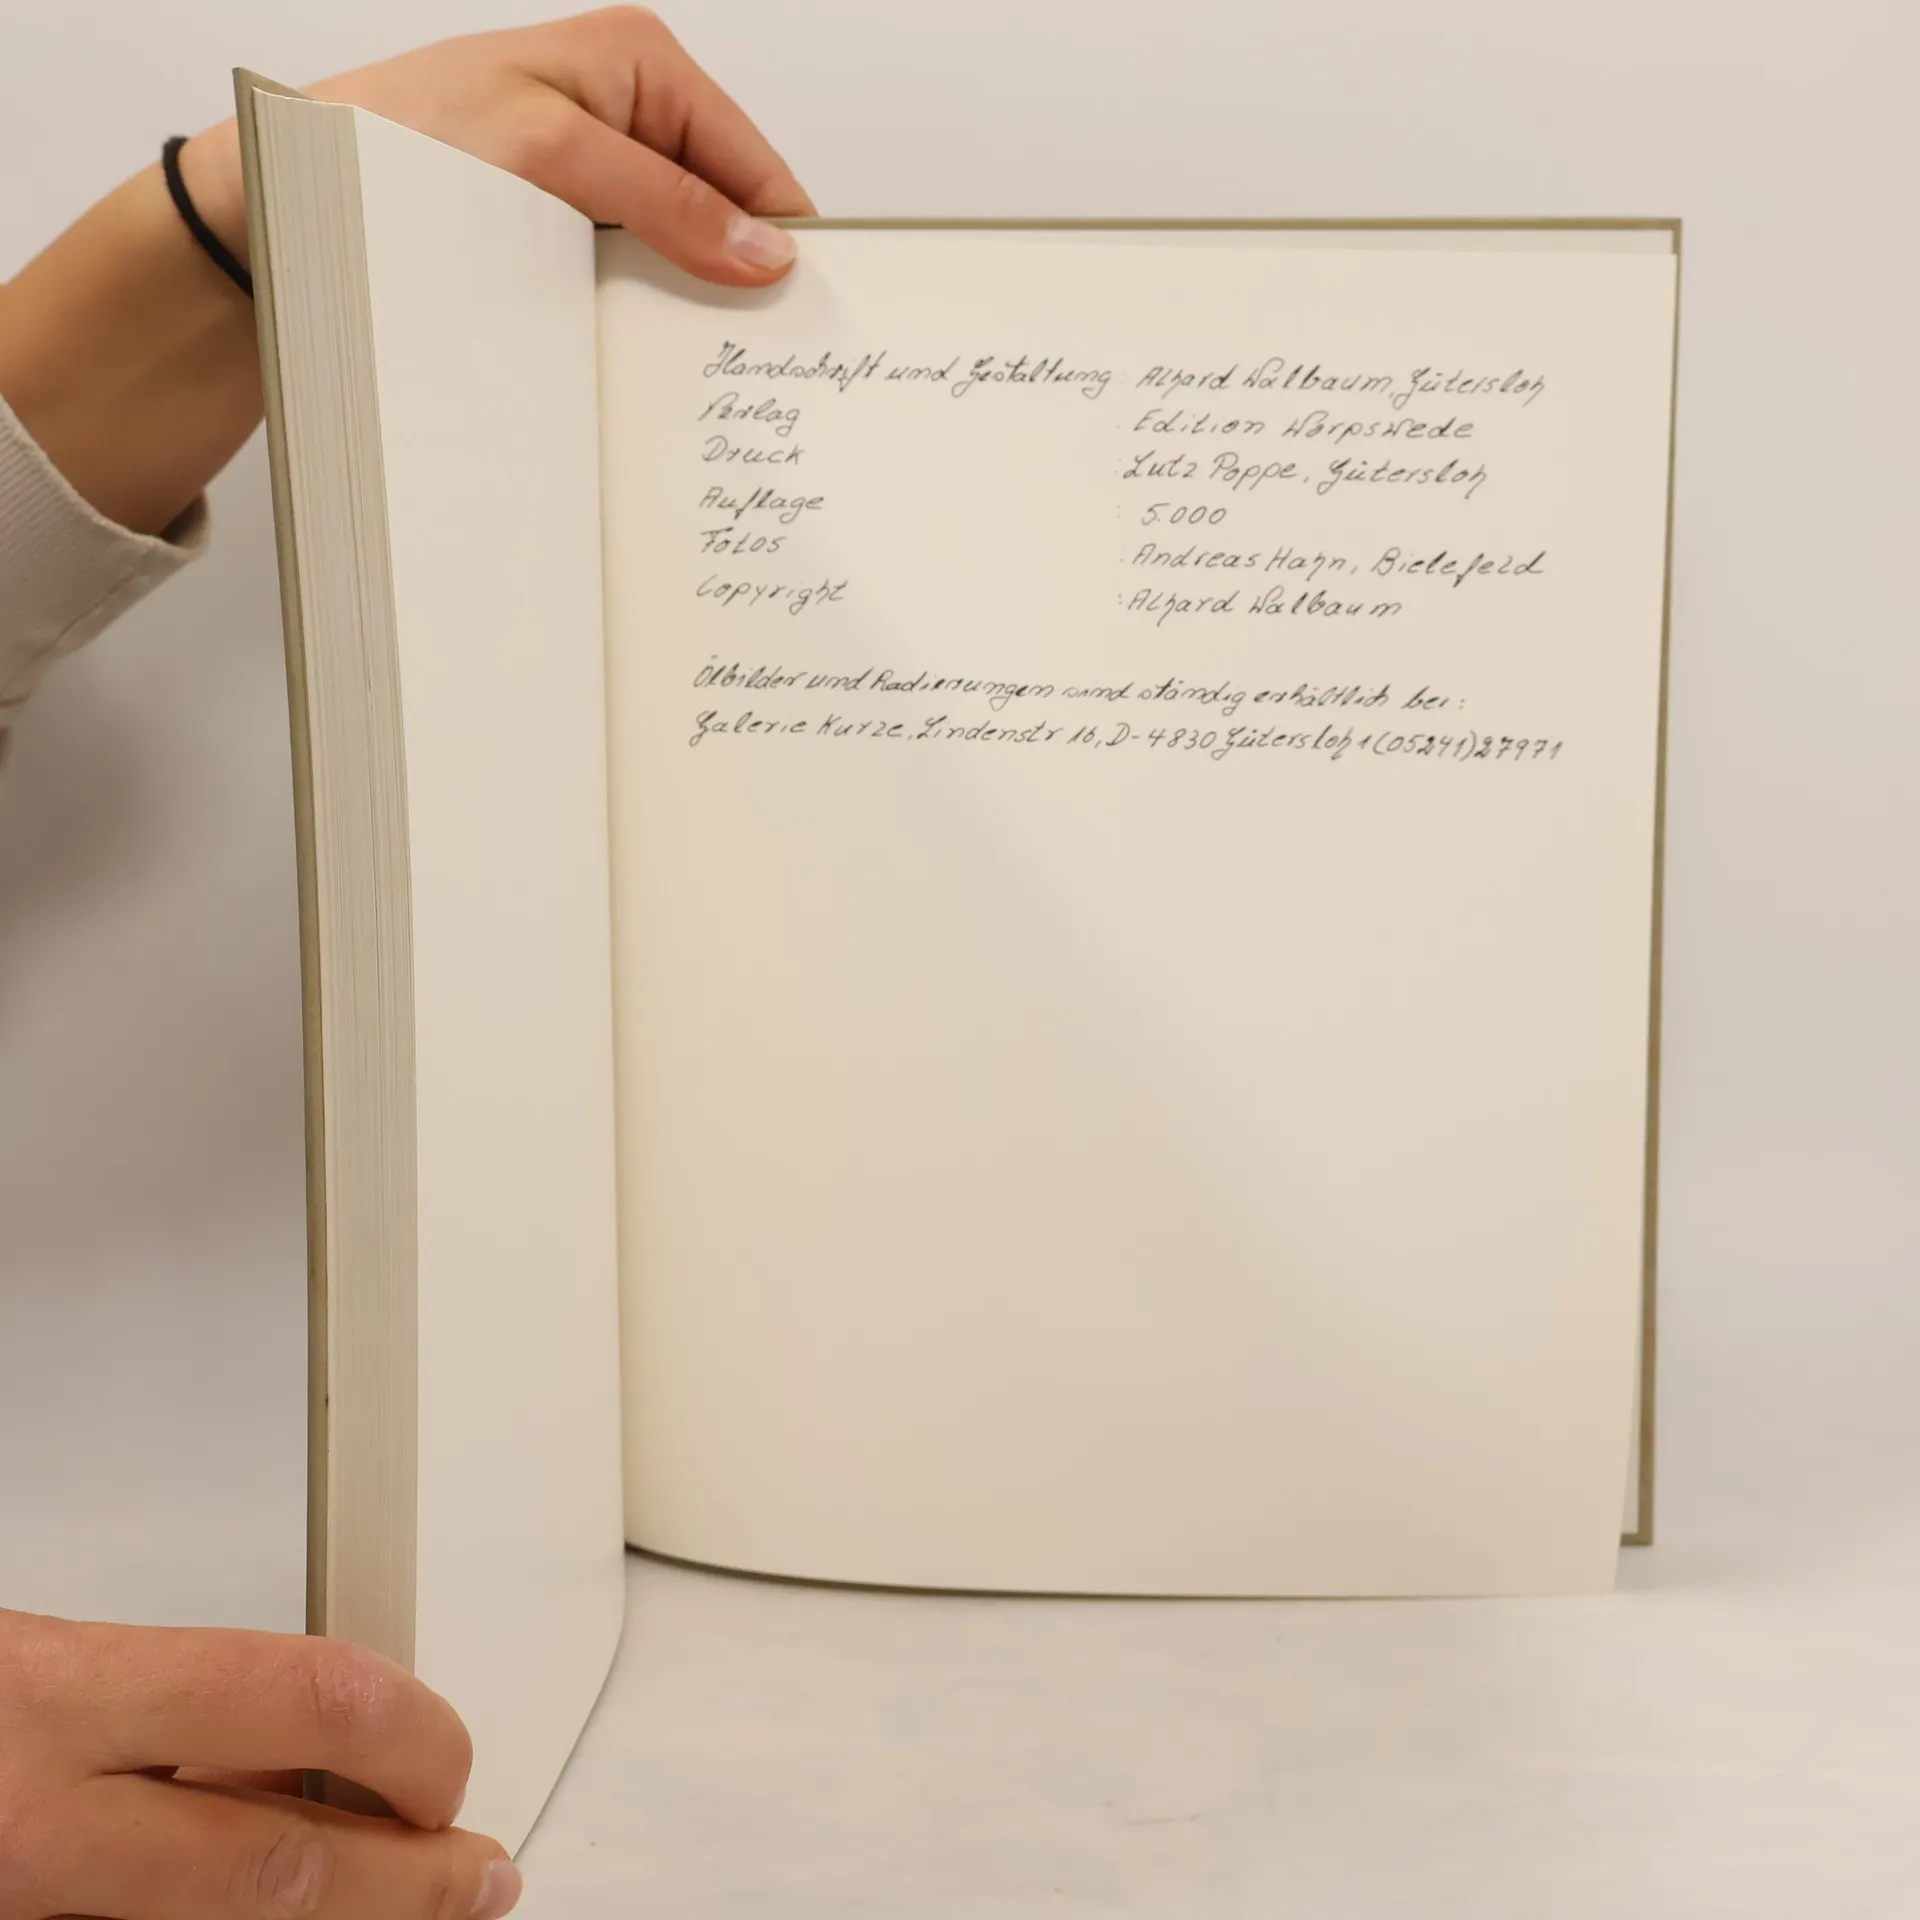 Handschrift und Gestaltung : Alhard Walbaum, Gütersloh
Verlag : Edition Worpswede
Druck : Lutz Poppe, Gütersloh
Auflage : 5.000
Fotos : Andreas Hahn, Bielefeld
Copyright : Alhard Walbaum
Ölbilder und Radierungen sind ständig erhältlich bei:
Galerie Kurze, Lindenstr 16, D-4830 Gütersloh 1 (05241) 27971